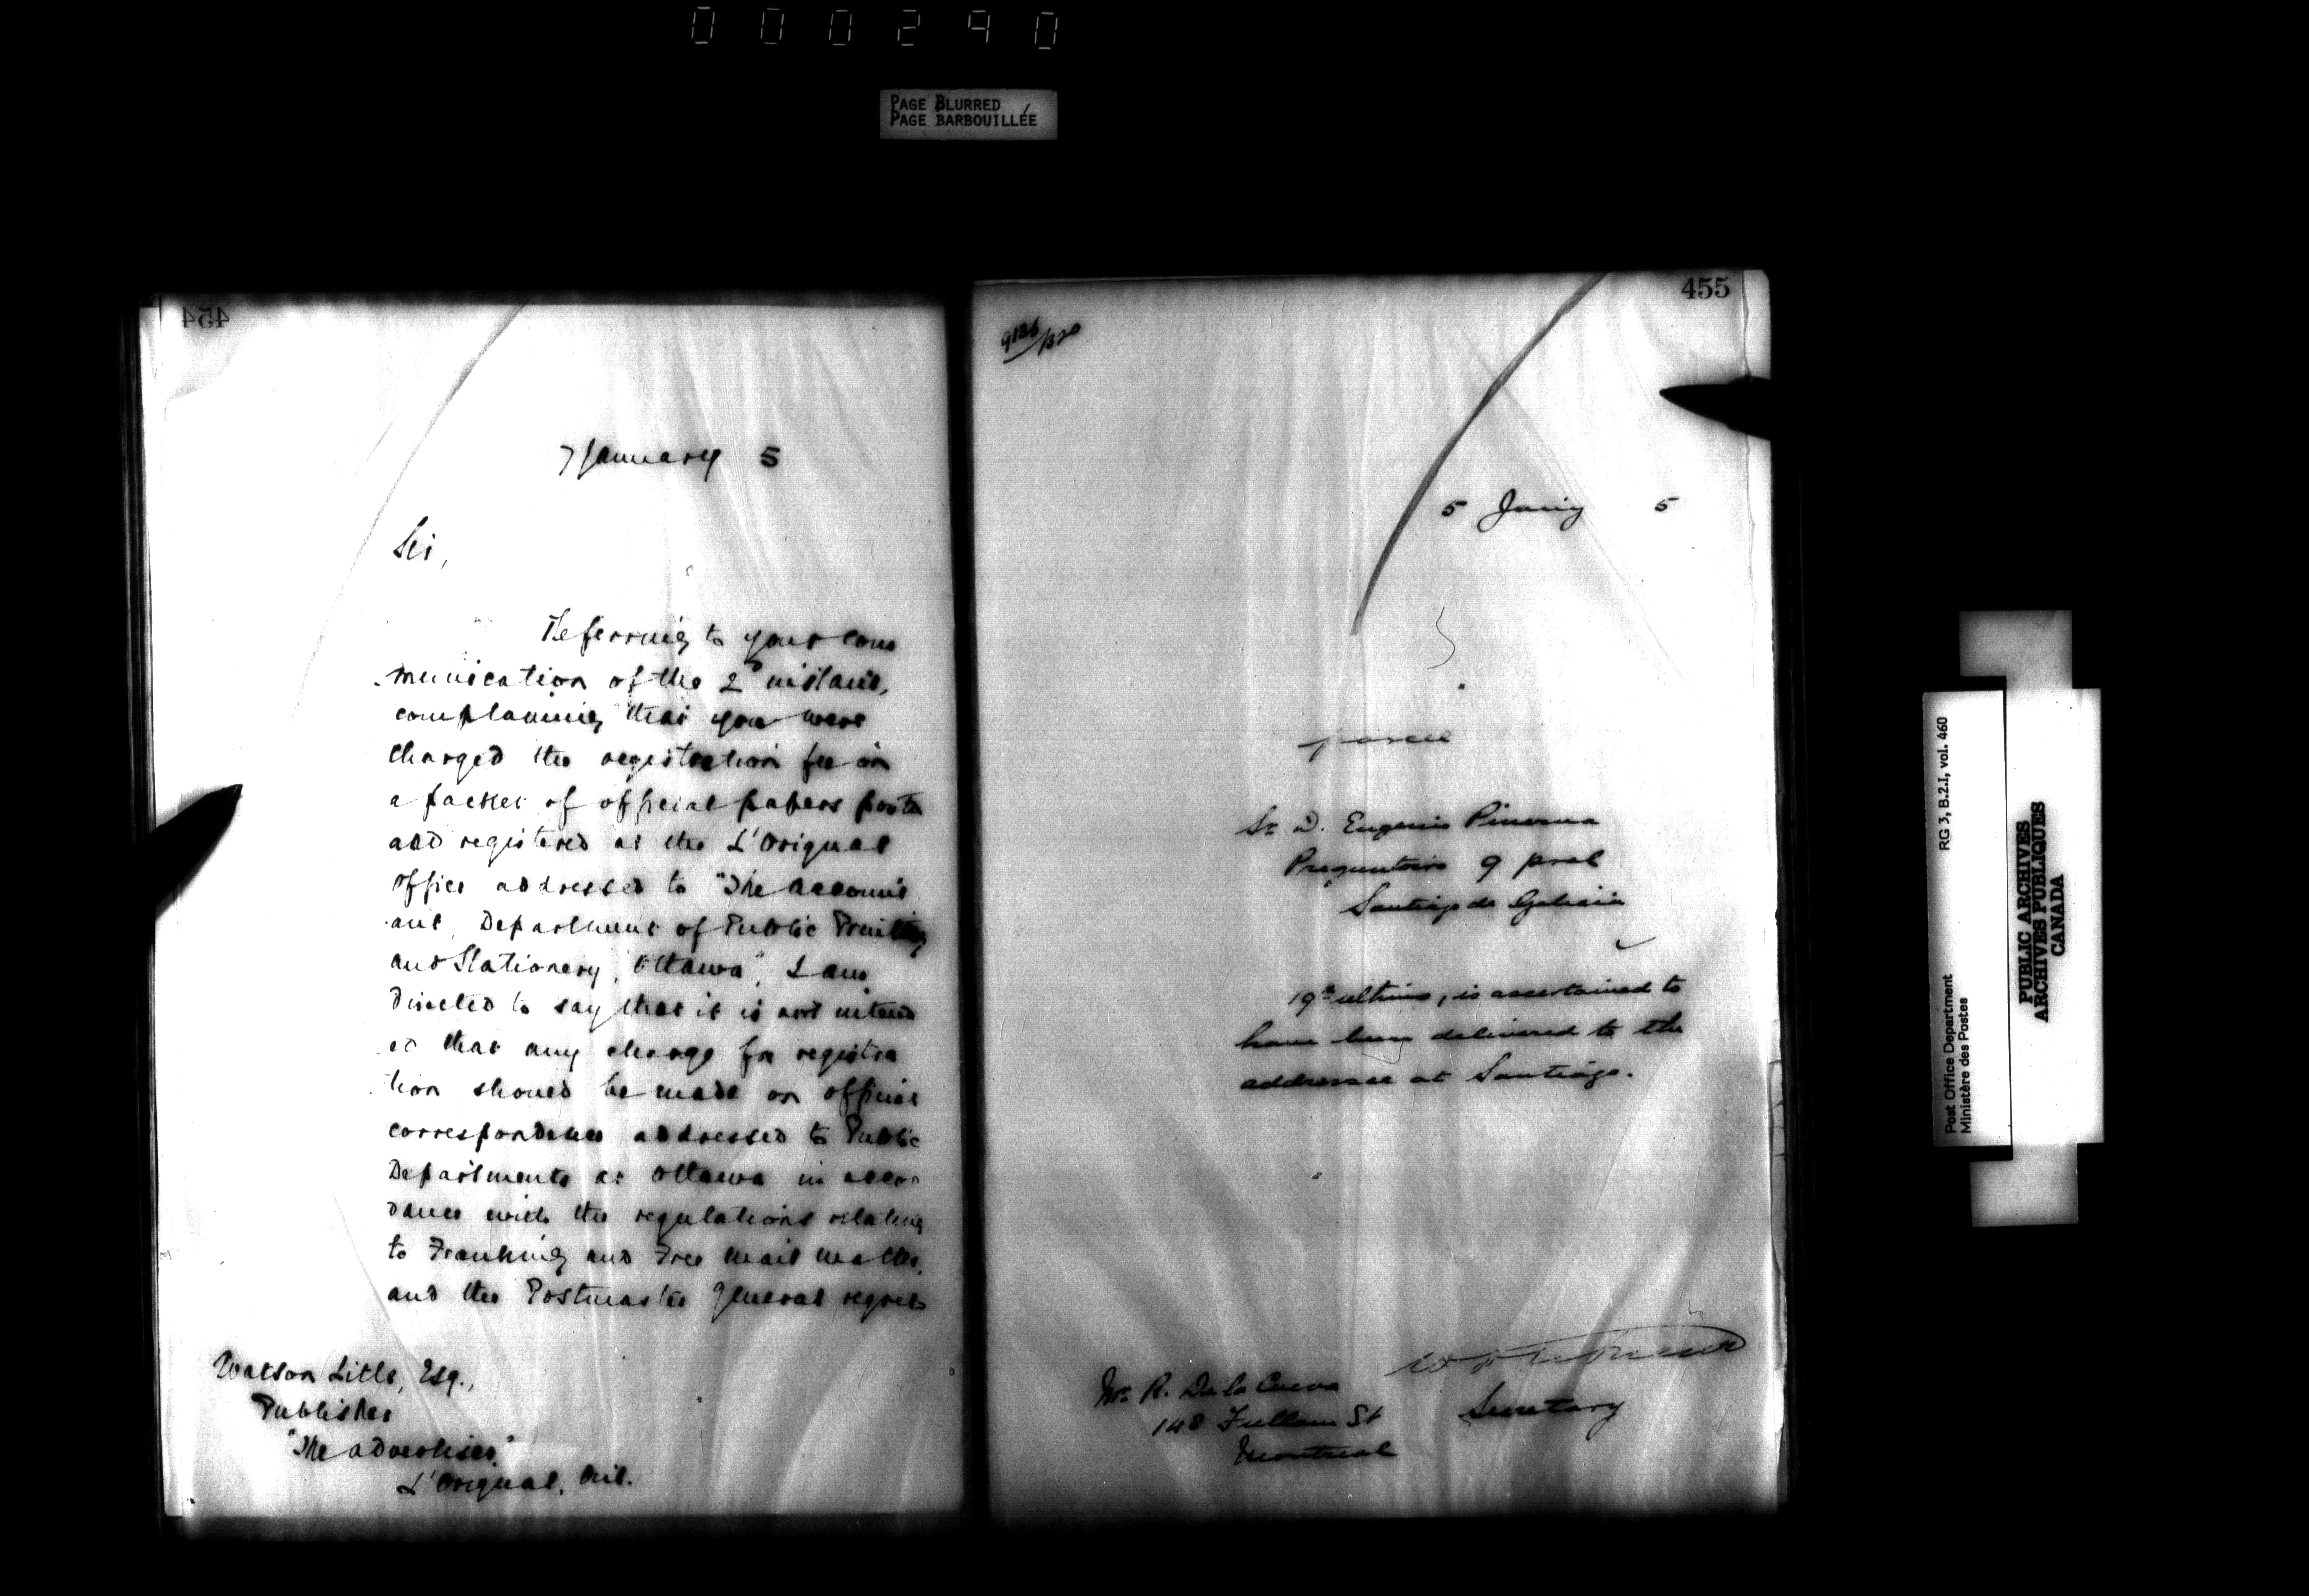 000290
PAGE BLURRED
PAGE BARBOUILLÉE
454
7 January 5
Sir,
Referring to your com
munication of the 2d instant,
complaining that you were
charged the registration fee on
a packet of official papers posted
and registered at the L'Orignal
office addressed to "The Account
ant, Department of Public Printing
and Stationery, Ottawa", I am
directed to say that it is not intend
ed that any charge for registra
tion should be made on official
correspondence addressed to Public
Departments at Ottawa in accor
dance with the regulations relating
to Franking and Free mail matter,
and the Postmaster General regrets
Watson Little, Esq.,
Publisher
"The Advertiser"
L'Orignal, Ont.
455
9136/320
5 Jany 5
parcel
Sr. D. Eugenio
9 pral
Santiago de Galicia
19th ultimo, is ascertained to
have been delivered to the
addressee at Santiago.
Secretary
Mr. R. De la Cueva
148 Fullum St
Montreal
Post Office Department
Ministère des Postes
RG 3, B.2.I, vol. 460
PUBLIC ARCHIVES
ARCHIVES PUBLIQUES
CANADA